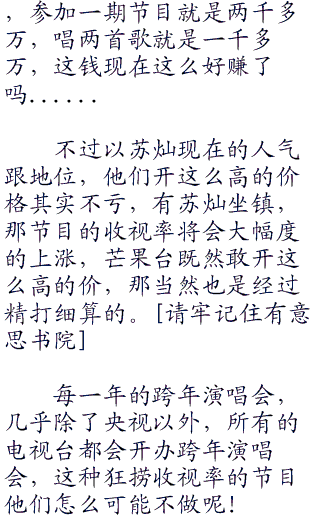 ，参加一期节目就是两千多
万，唱两首歌就是一千多
万，这钱现在这么好赚了
吗......
不过以苏灿现在的人气
跟地位，他们开这么高的价
格其实不亏，有苏灿坐镇，
那节目的收视率将会大幅度
的上涨，芒果台既然敢开这
么高的价，那当然也是经过
精打细算的。[请牢记住有意
思书院]
每一年的跨年演唱会，
几乎除了央视以外，所有的
电视台都会开办跨年演唱
会，这种狂捞收视率的节目
他们怎么可能不做呢！